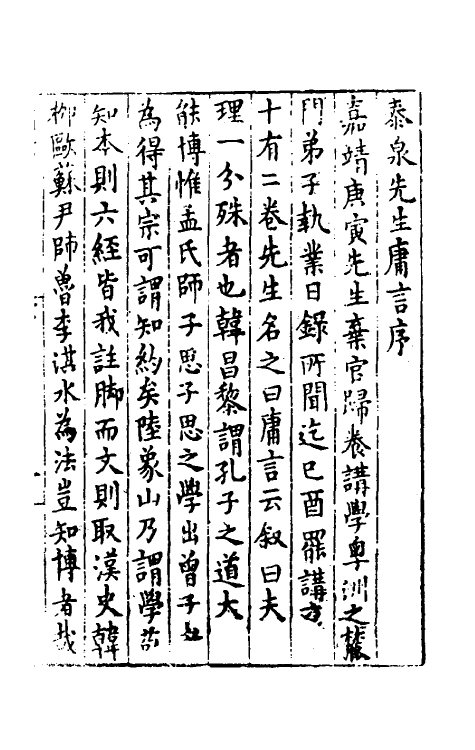 泰泉先生庸言序
嘉靖庚寅先生棄官歸養講學粵洲之麓
門弟子執業日錄所聞迄己酉罷講
十有二卷先生名之曰庸言云叙曰夫
理一分殊者也韓昌黎謂孔子之道大
能博惟孟氏師子思子思之學出曾子
為得其宗可謂知約矣陸象山乃謂學苟
知本則六經皆我註脚而文則取漢史韓
柳歐蘇尹師魯李淇水為法豈知博者哉